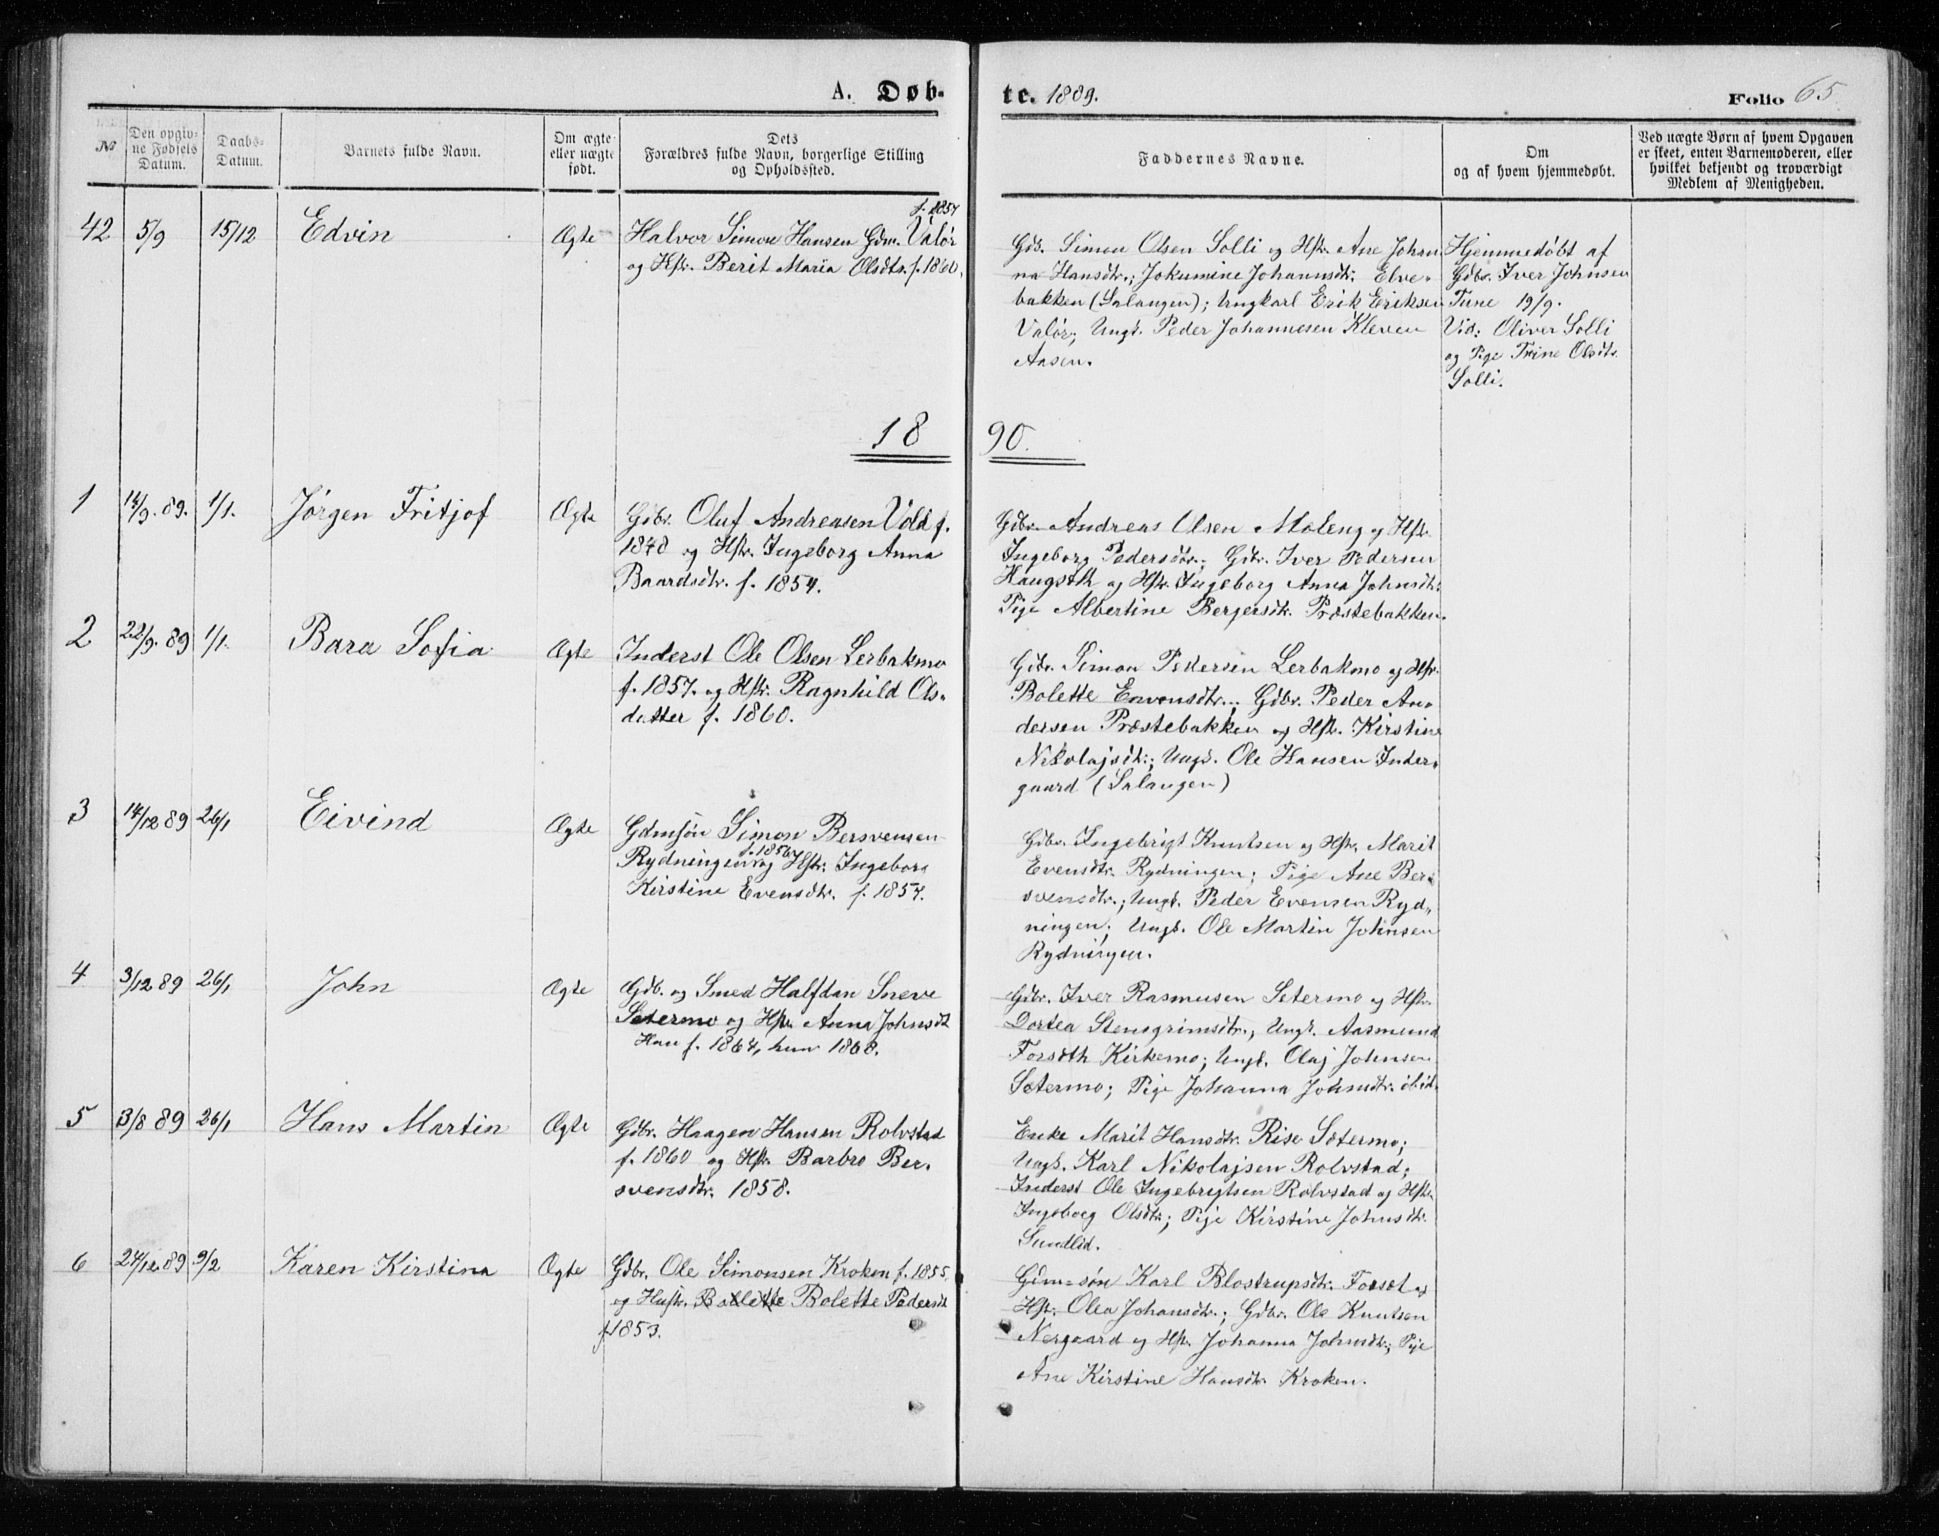 A. Døbte. 1889.
Folio 65
No
Den opgivne Fødsels Datum.
Daabs-Datum.
Barnets fulde Navn.
Om ægte eller uægte født.
Dets Forældres fulde Navn, borgerlige Stilling og Opholdssted.
Faddernes Navne.
Om og af hvem hjemmedøbt.
Ved uægte Børn af hvem Opgaven er skeet, enten Barnemoderen, eller hvilket bekjendt og troværdigt Medlem af Menigheden.
42 5/9 15/12 Edvin Ægte
f. 1857
Halvor Simon Hansen Gdm. Valør
og Hstr. Berit Maria Olsdtr. f. 1860.
Gdb. Simon Olsen Solli og Hstr. Ane Johan
na Hansdtr.; Jokumine Johannsdtr. Elve-
bakken (Salangen); Ungkarl Erik Eriksen
Valør; Ungk. Peder Johannesen Kleven
Aasen.
Hjemmedøbt af
Gdbr. Iver Johnsen
Tune 19/9.
Vid: Oliver Solli
og Pige Trine Olsdtr.
Solli.
1890.
1 14/9. 89. 1/1. Jørgen Fritjof Ægte
Gdbr. Oluf Andreasen Vold f.
1848 og Hstr. Ingeborg Anna
Baardsdtr. f. 1854.
Gdbr. Andreas Olsen Moleng og Hstr.
Ingeborg Pedersdtr.; Gdbr. Iver Pedersen
Haugseth og Hstr. Ingeborg Anna Johnsdtr.
Pige Albertine Bergersdtr. Præstebakken.
2 22/9. 89 1/1. Bara Sofia Ægte
Inderst Ole Olsen Lerbakmo
f. 1857. og Hstr. Ragnhild Ols-
datter f. 1860.
Gdbr. Simon Pedersen Lerbakmo og Hstr.
Bolette Envensdtr.; Gdbr. Peder An-
dersen Præstebakken og Hstr. Kirstine
Nikolajsdtr.; Ungk. Ole Hansen Inder-
gaard (Salangen)
3 14/12 89 26/1 Eivind Ægte
Gdmsøn Simon Bersvensen
Rydningen f. 1856 og Hstr. Ingeborg
Kirstine Evensdtr. f. 1857.
Gdbr. Ingebrigt Knutsen og Hstr. Marit
Evensdtr. Rydningen; Pige Ane Ber-
svensdtr.; Ungk. Peder Evensen Ryd-
ningen; Ungk. Ole Martin Johnsen
Rydningen.
4 3/12 89 26/1 John Ægte
Gdb. og Smed Halfdan Sneve
Setermo og Hstr. Anna Johnsdtr
Han f. 1864, hun 1868.
Gdbr. Iver Rasmusen Setermo og Hstr.
Dortea Stensgrimsdtr.; Ungk. Aasmund
Forsæth Kirkemo; Ungk. Olaj Johnsen
Sætermo; Pige Johanna Johnsdtr. ibid.
5 3/8 89 26/1 Hans Martin Ægte
Gdbr. Haagen Hansen Rolvstad
f. 1860 og Hstr. Barbro Ber-
svensdtr. 1858.
Enke Marit Hansdtr. Rise Sætermo;
Ungk. Karl Nikolajsen Rolvstad;
Inderst Ole Ingebrigtsen Rolvstad og Hstr.
Ingeborg Olsdtr; Pige Kirstine Johnsdtr.
Sundlid.
6 24/12. 89 9/2 Karen Kirstina Ægte
Gdbr. Ole Simonsen Kroken f. 1855.
og Hustr. Bollette Bolette Pedersdtr
f. 1853.
Gdm-søn Karl Blostrupsdtr. Forsæt og
Hstr. Olea Johansdtr.; Gdbr. Ole Knutsen
Nergaard og Hstr. Johanna Johnsdtr.; Pige
Ane Kirstine Hansdtr. Kroken.